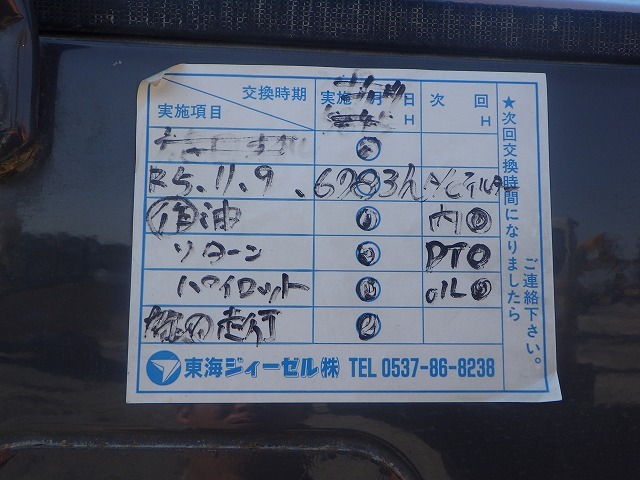 交換時期 実施 月 日 次 回
実施項目 H H
R5.11.9、6783h
作油 内
リターン PTO
パイロット オイル
走行
★次回交換時間になりましたら
ご連絡下さい。
東海ヂィーゼル㈱ TEL 0537-86-8238